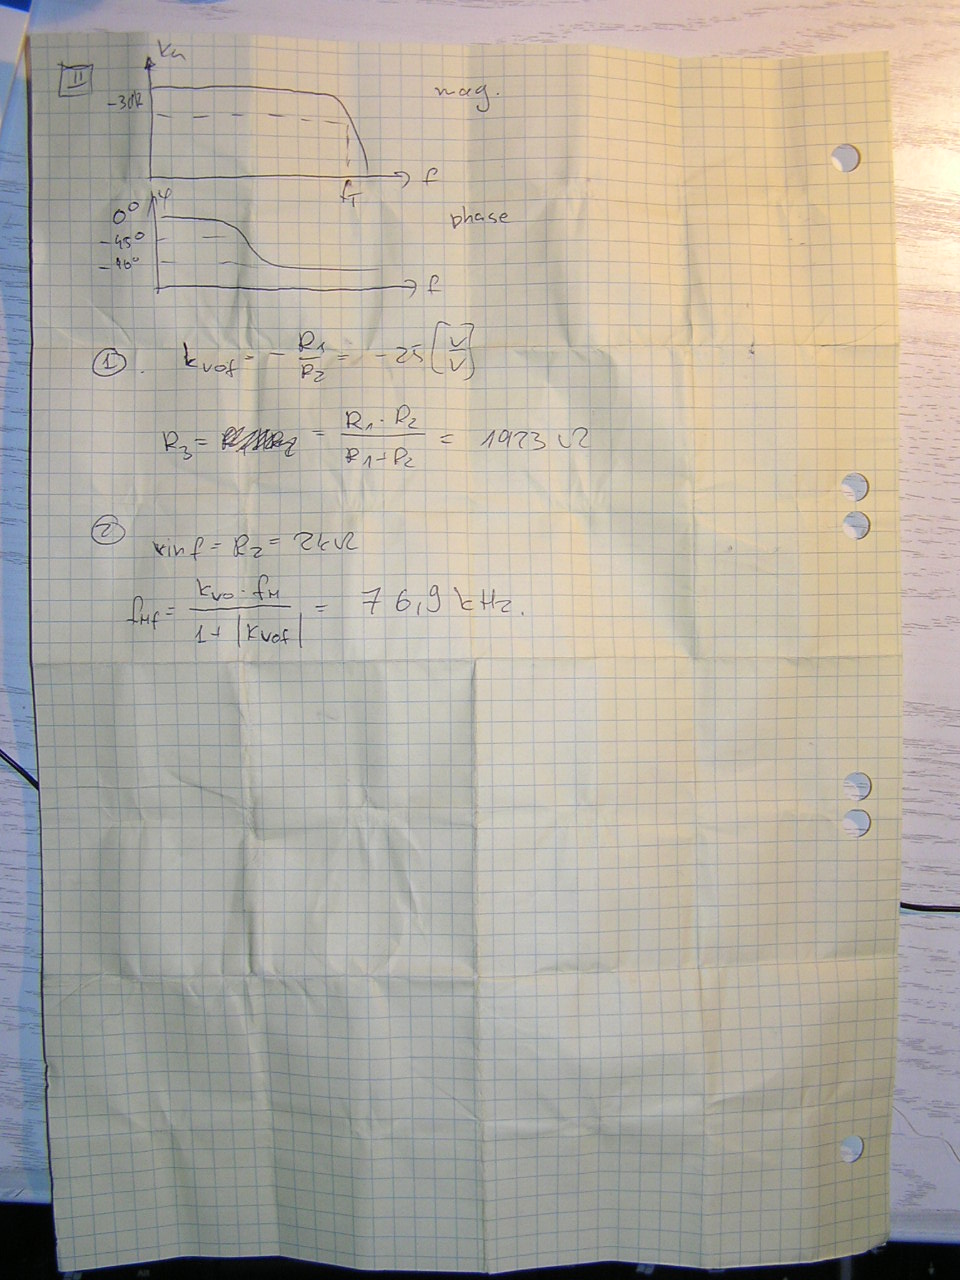 II
Ku
-3dB
mag.
f
fT
φ
0°
-45°
-90°
phase
f
① . kvof = - R1/R2 = -25 [V/V]
R3 = = R1·R2/R1+R2 = 1923 Ω
② rinf = R2 = 2kΩ
fHf = kvo·fH/1+|kvof| = 76,9 kHz.